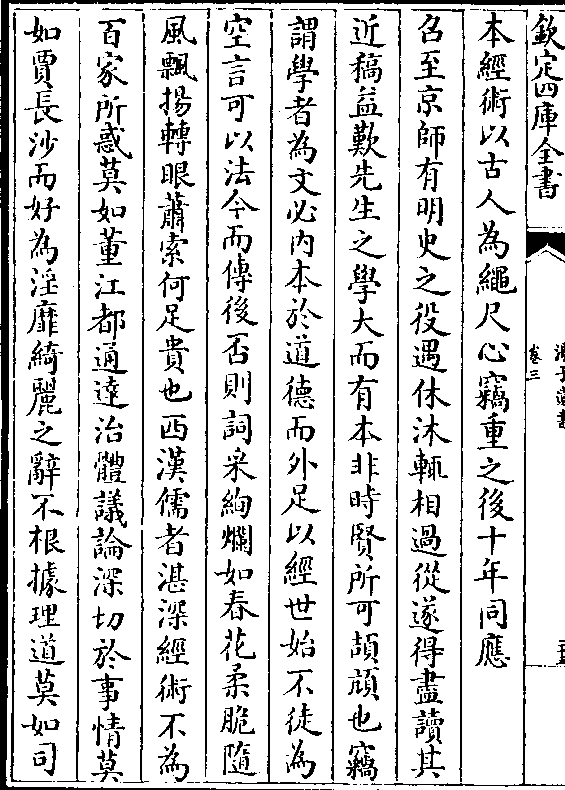 欽定四庫全書
卷三
本經術以古人為繩尺心竊重之後十年同應
召至京師有明史之役遇休沐輒相過從遂得盡讀其
近稿益歎先生之學大而有本非時賢所可頡頏也竊
謂學者為文必內本於道德而外足以經世始不徒為
空言可以法今而傳後否則詞采絢爛如春花柔脆隨
風飄揚轉眼蕭索何足貴也西漢儒者湛深經術不為
百家所惑莫如董江都通達治體議論深切於事情莫
如賈長沙而好為淫靡綺麗之辭不根據理道莫如司